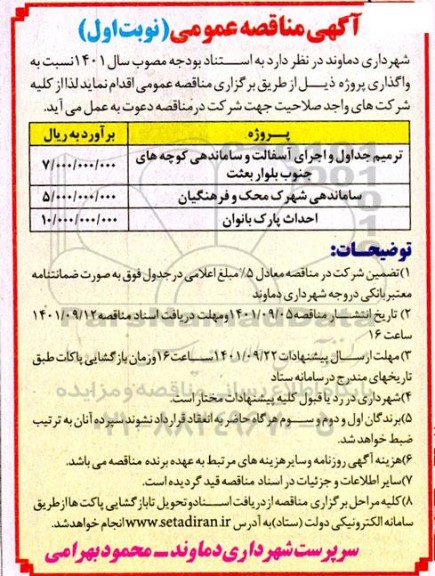 آگهی مناقصه عمومی (نوبت اول)
شهرداری دماوند در نظر دارد به استناد بودجه مصوب سال ۱۴۰۱ نسبت به
واگذاری پروژه ذیل از طریق برگزاری مناقصه عمومی اقدام نماید لذا از کلیه
شرکت های واجد صلاحیت جهت شرکت در مناقصه دعوت به عمل می آید.
پروژه برآورد به ریال
ترمیم جداول و اجرای آسفالت و ساماندهی کوچه های جنوب بلوار بعثت ۷/۰۰۰/۰۰۰/۰۰۰
ساماندهی شهرک محک و فرهنگیان ۵/۰۰۰/۰۰۰/۰۰۰
احداث پارک بانوان ۱۰/۰۰۰/۰۰۰/۰۰۰
توضیحات:
۱) تضمین شرکت در مناقصه معادل ۵٪ مبلغ اعلامی در جدول فوق به صورت ضمانتنامه
معتبر بانکی در وجه شهرداری دماوند
۲) تاریخ انتشار مناقصه ۱۴۰۱/۰۹/۰۵ و مهلت دریافت اسناد مناقصه ۱۴۰۱/۰۹/۱۲
ساعت ۱۶
۳) مهلت ارسال پیشنهادات ۱۴۰۱/۰۹/۲۲ ساعت ۱۶ و زمان بازگشایی پاکات طبق
تاریخهای مندرج در سامانه ستاد
۴) شهرداری در رد یا قبول کلیه پیشنهادات مختار است.
۵) برندگان اول و دوم و سوم هرگاه حاضر به انعقاد قرارداد نشوند سپرده آنان به ترتیب
ضبط خواهد شد.
۶) هزینه آگهی روزنامه و سایر هزینه های مرتبط به عهده برنده مناقصه می باشد.
۷) سایر اطلاعات و جزئیات در اسناد مناقصه قید گردیده است.
۸) کلیه مراحل برگزاری مناقصه از دریافت اسناد و تحویل تا بازگشایی پاکت ها از طریق
سامانه الکترونیکی دولت (ستاد) به آدرس www.setadiran.ir انجام خواهد شد.
سرپرست شهرداری دماوند - محمود بهرامی